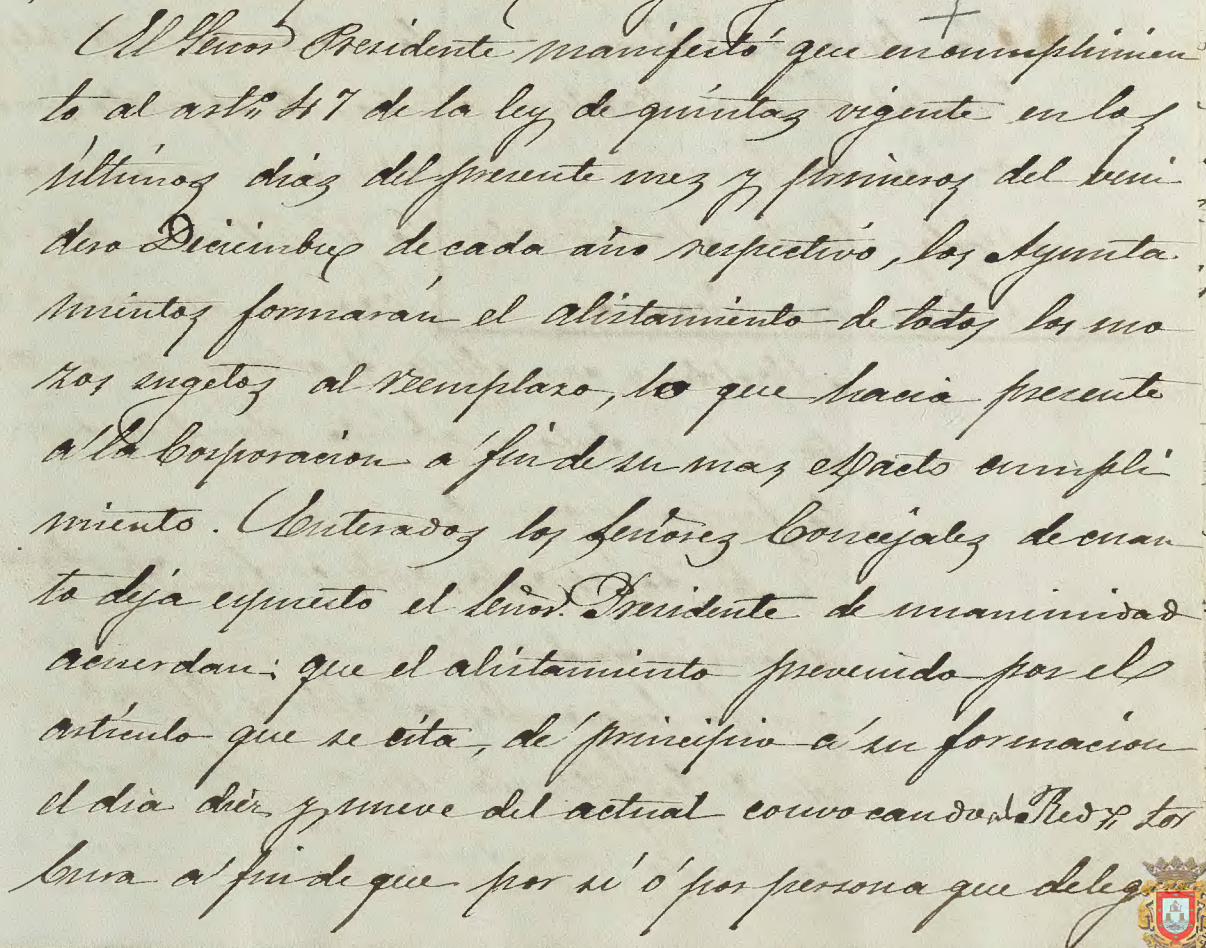 El Señor Presidente manifestó que en cumplimien
to al artº 47 de la ley de quintas vigente en los
últimos dias del presente mes y primeros del veni
dero Diciembre de cada año respectivo, los Ayunta
mientos formarán el alistamiento de todos los mo
zos sugetos al reemplazo, lo que hacia presente
á la Corporacion á fin de su mas exacto cumpli
miento. Enterados los Señores Concejales de cuan
to deja espuesto el Señor Presidente de unanimidad
acuerdan: que el alistamiento prevenido por el
artículo que se cita, dé principio á su formacion
el dia diez y nueve del actual convocando al
Cura á fin de que por sí ó por persona que deleg